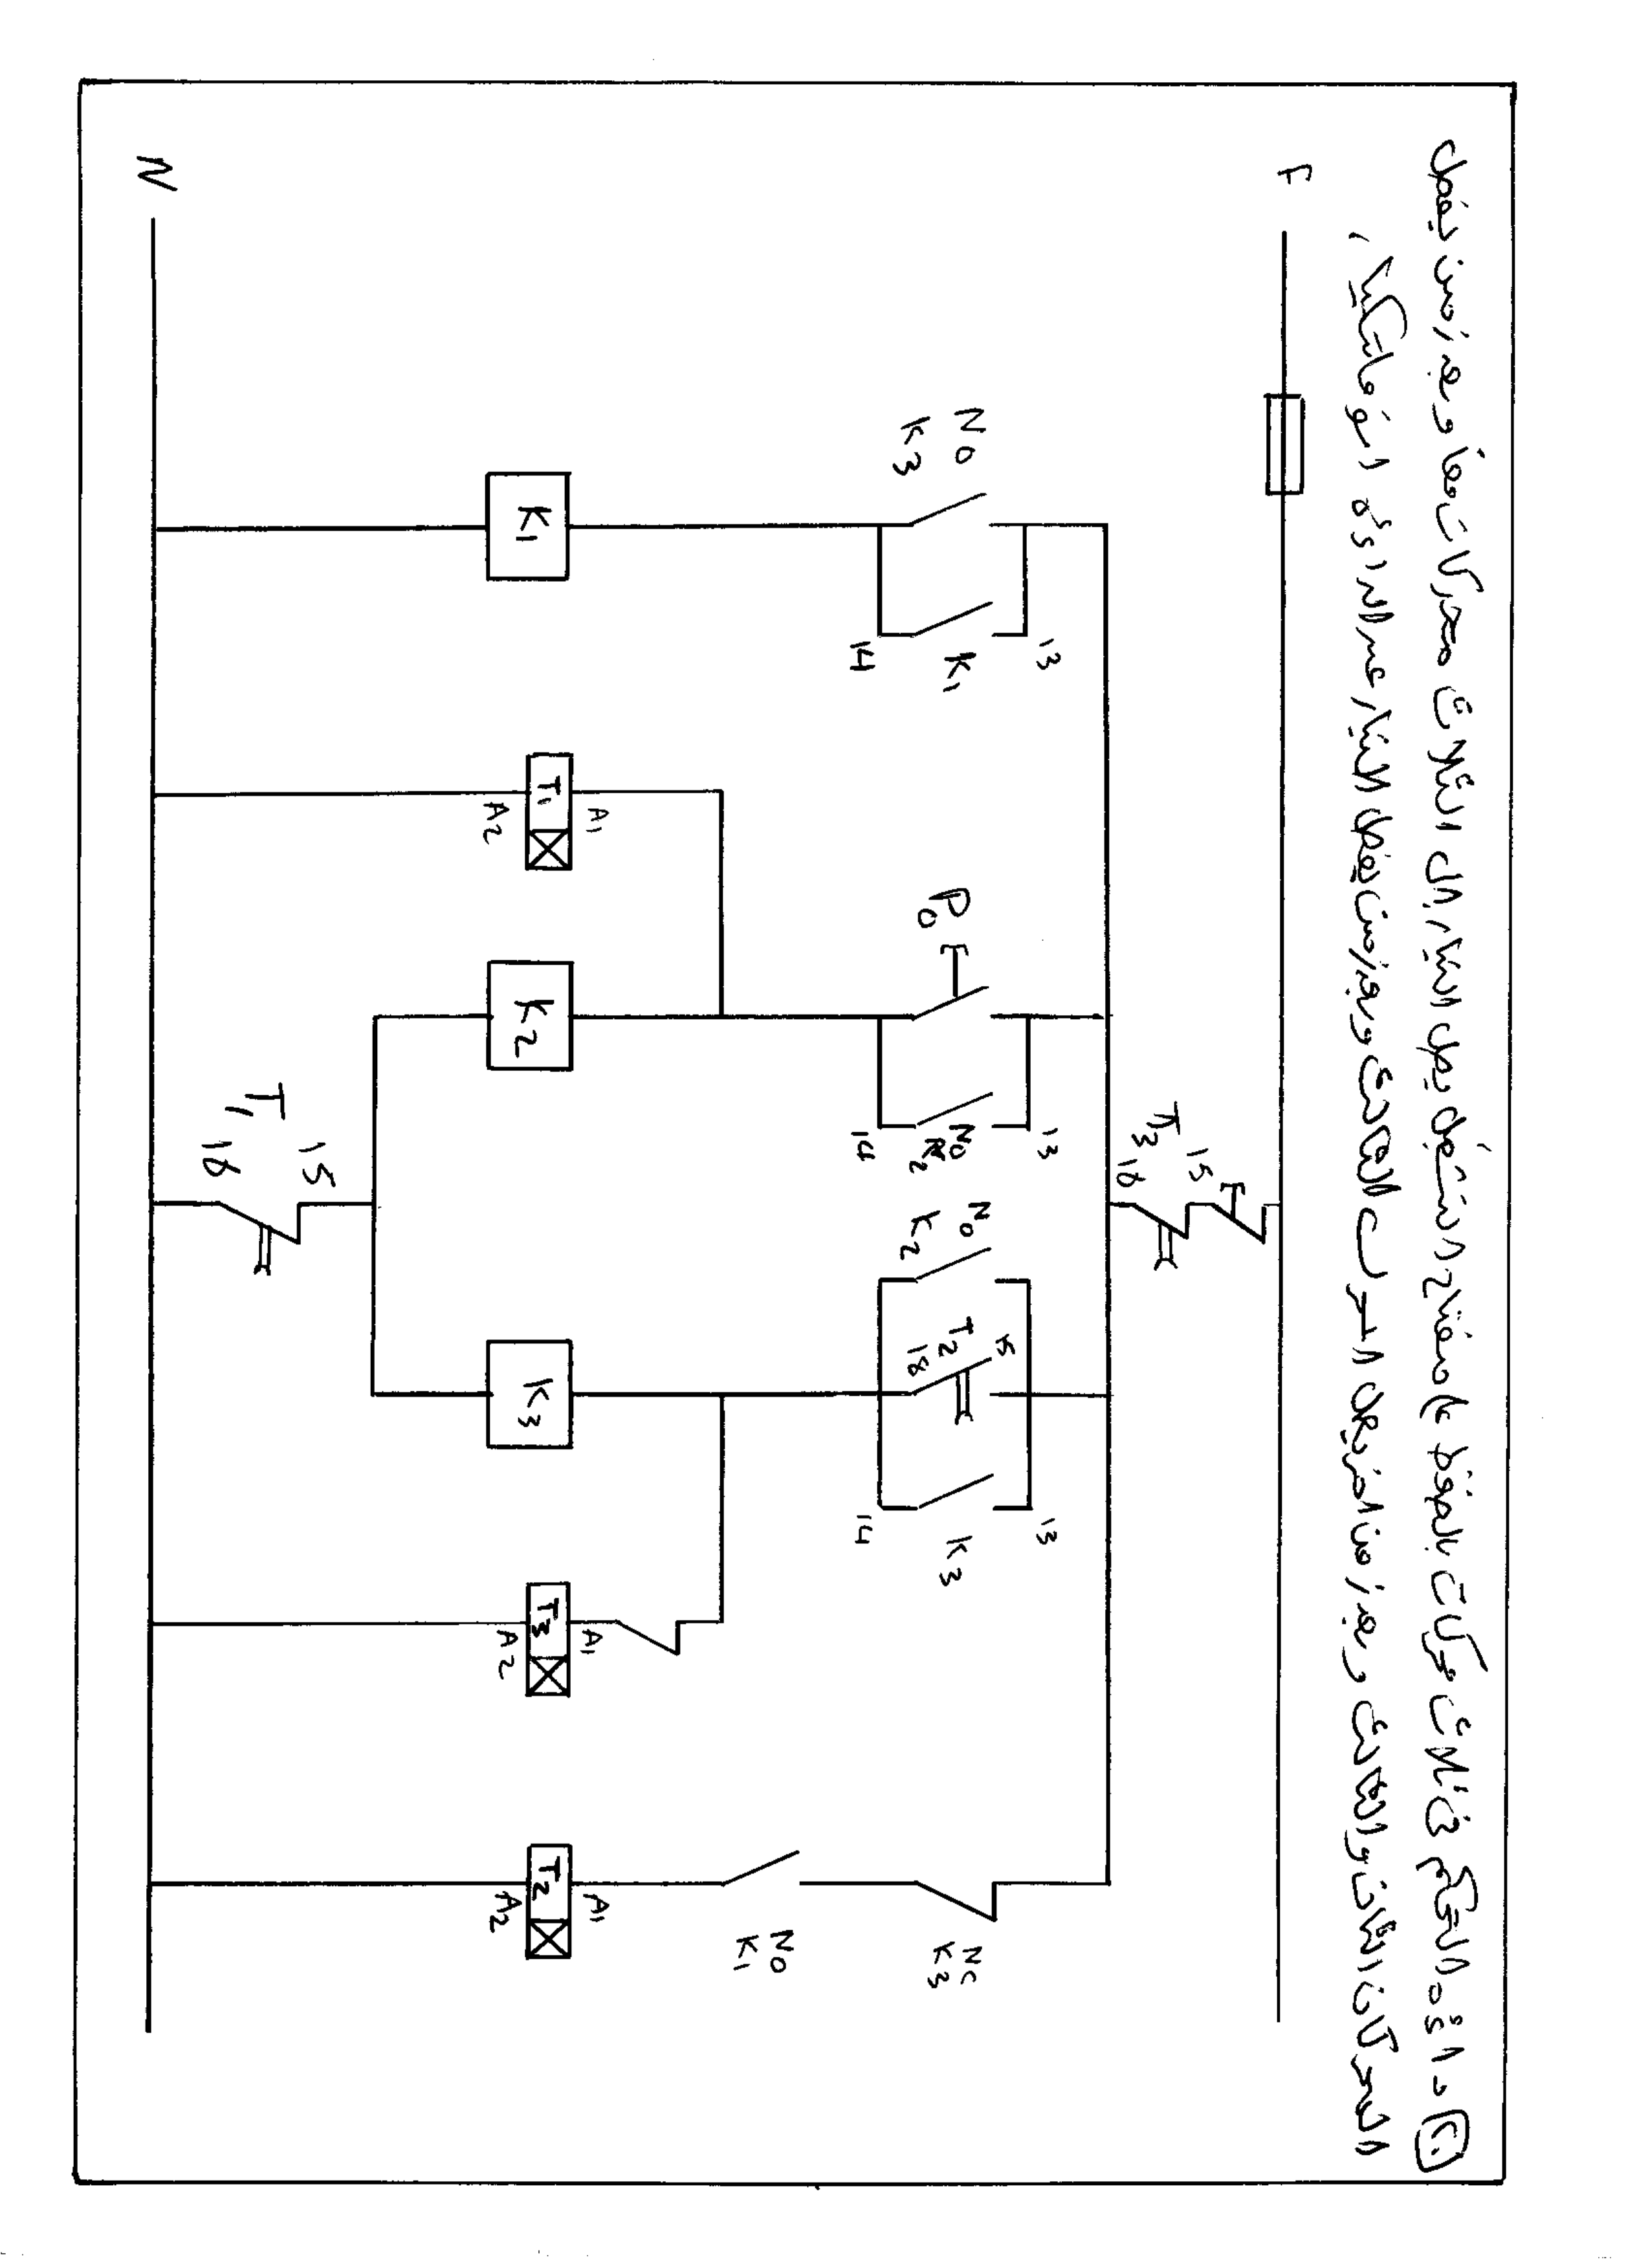 ٢٠ دائرة التحكم في ثلاث محركات بالضغط على مفتاح التشغيل يصل التيار إلى الثلاث محركات معاً وبعد زمن يفصل
المحركان الثاني والثالث وبعد زمن اخر يعمل المحرك الثالث وبعد زمن يفصل التيار عن الدائرة اتوماتيكياً
F
T3 15 18
NO K3
13 K1 14
P0
13 NO K2 14
NO K2
15 T2 18
13 K3 14
NC K3
NO K1
K1
T1 A1 A2
K2
K3
T3 A1 A2
T2 A1 A2
15 T1 18
N